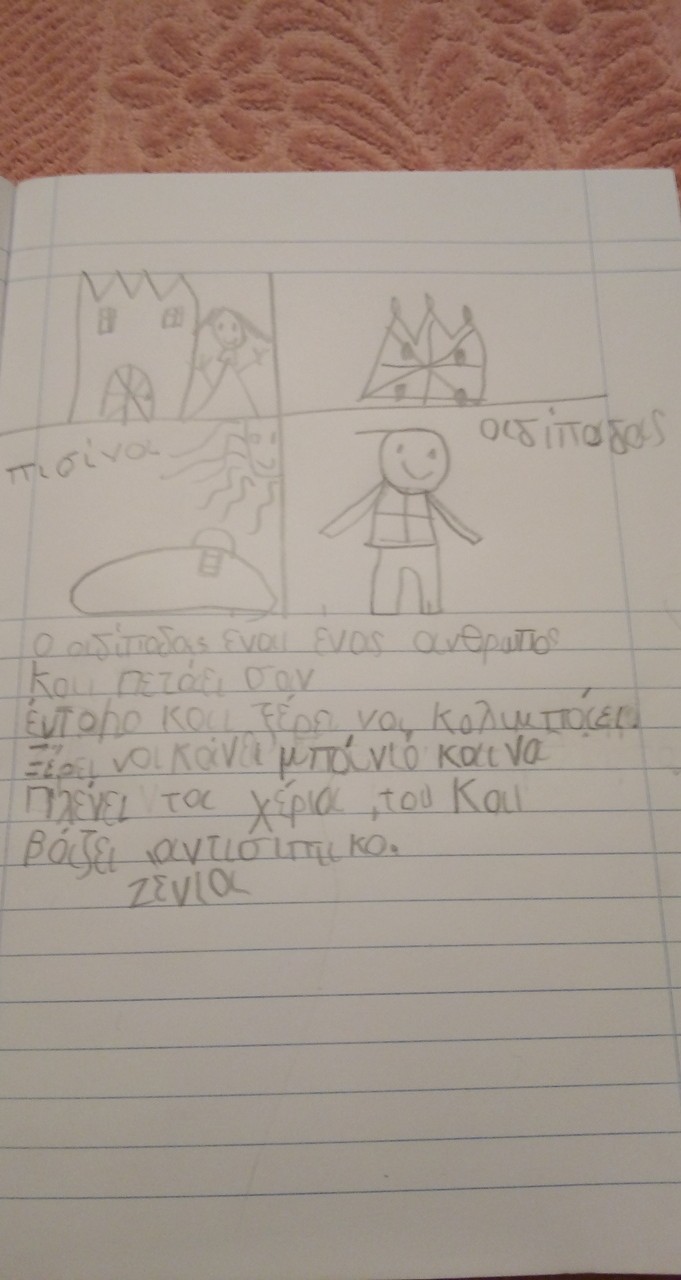 πισίνα
οιδίποδας
Ο οιδίποδας εναι ένας ανθραπος
και πετάει σαν
έντομο και ξέρει να κολιμπάει.
Ξέρει να κάνει μπάνιο και να
πλένει τα χέρια του και
βάζει αντισιπικο.
Ζένια